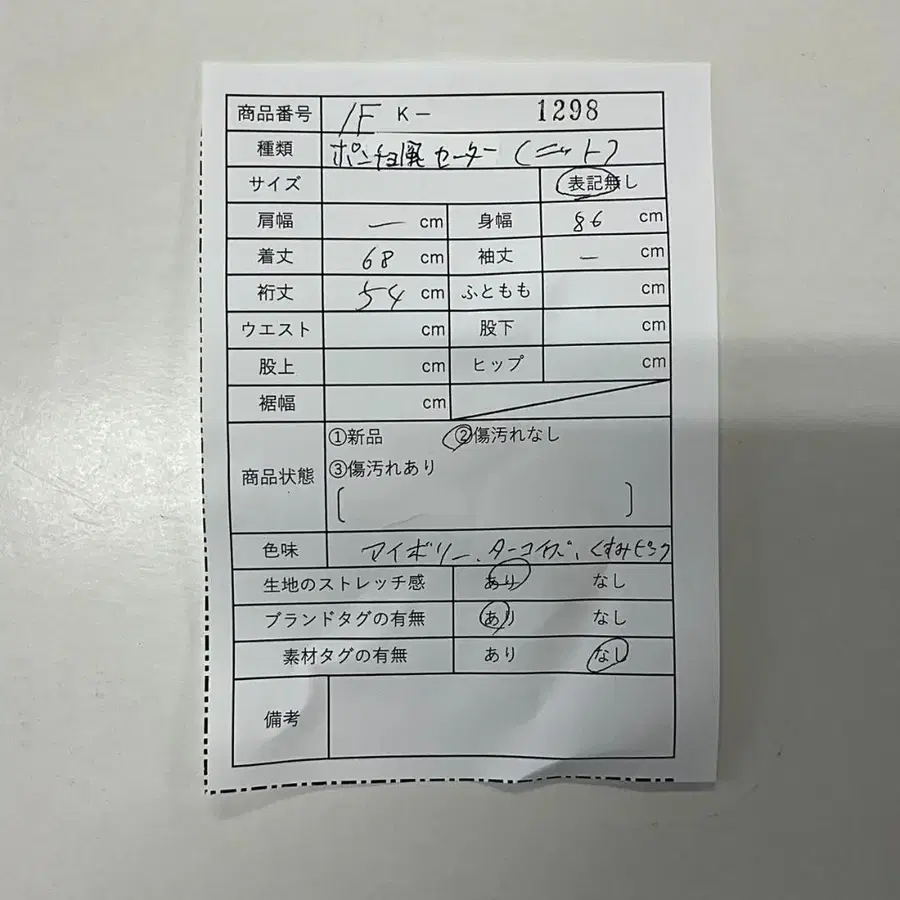 商品番号 1F K- 1298
種類 ポンチョ風セーター(ニット)
サイズ 表記無し
肩幅 ー cm 身幅 86 cm
着丈 68 cm 袖丈 ー cm
裄丈 54 cm ふともも cm
ウエスト cm 股下 cm
股上 cm ヒップ cm
裾幅 cm
①新品 ②傷汚れなし
商品状態 ③傷汚れあり
[ ]
色味 アイボリー、ターコイズ、くすみピンク
生地のストレッチ感 あり なし
ブランドタグの有無 あり なし
素材タグの有無 あり なし
備考